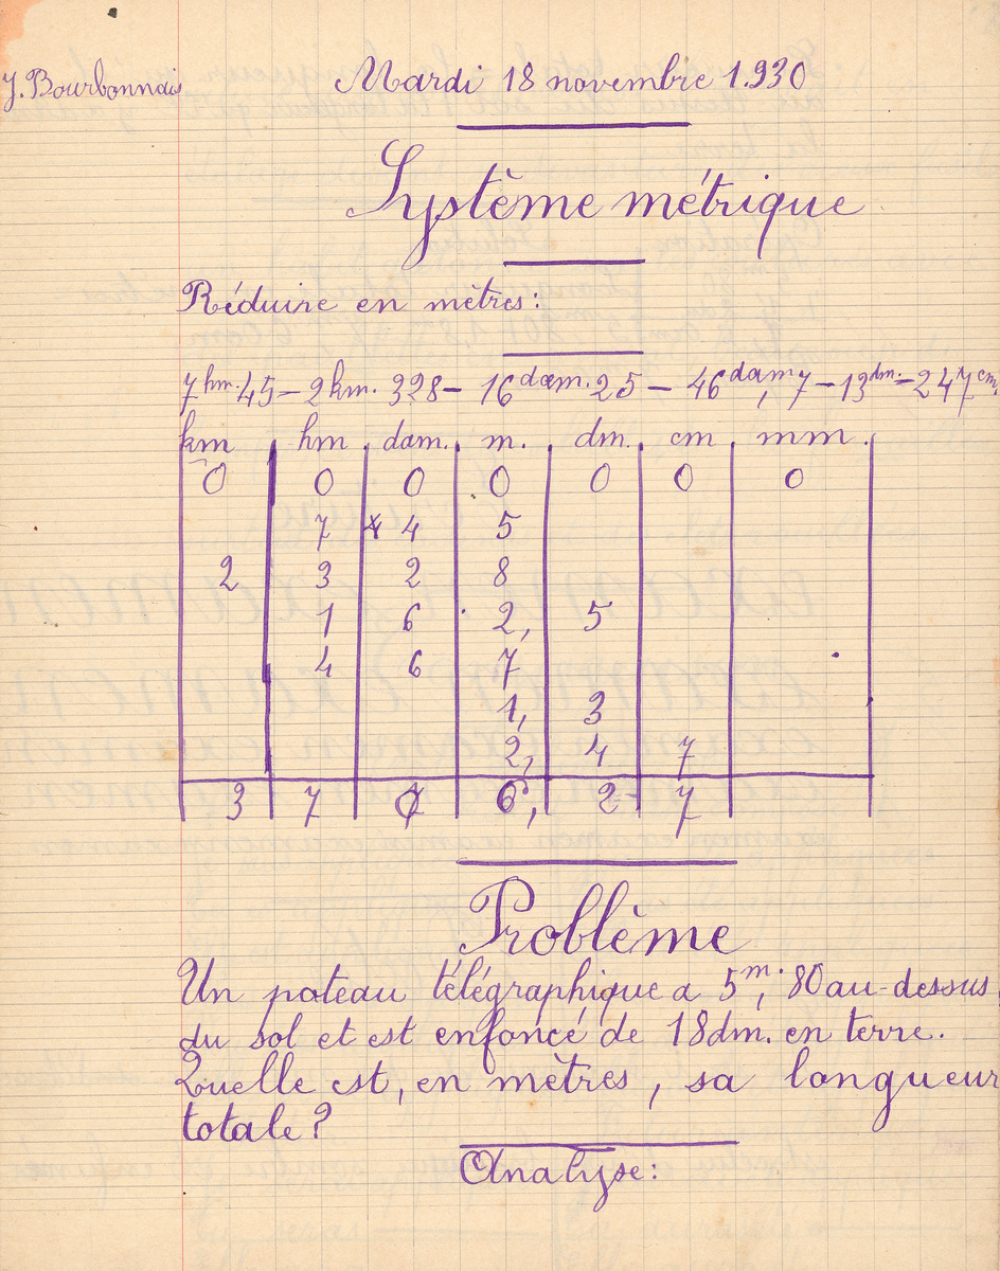 J. Bourbonnais
Mardi 18 novembre 1.930
Système métrique
Réduire en mètres:
7 hm. 45 – 2 km. 328 – 16 dam. 25 – 46 dam, 7 – 13 dm. – 247 cm.
km hm dam. m. dm. cm mm.
0 0 0 0 0 0 0
7 4 5
2 3 2 8
1 6 2, 5
4 6 7
1, 3
2, 4 7
3 7 6, 2 7
Problème
Un poteau télégraphique a 5 m., 80 au-dessus
du sol et est enfoncé de 18 dm. en terre.
Quelle est, en mètres, sa longueur
totale?
Analyse: